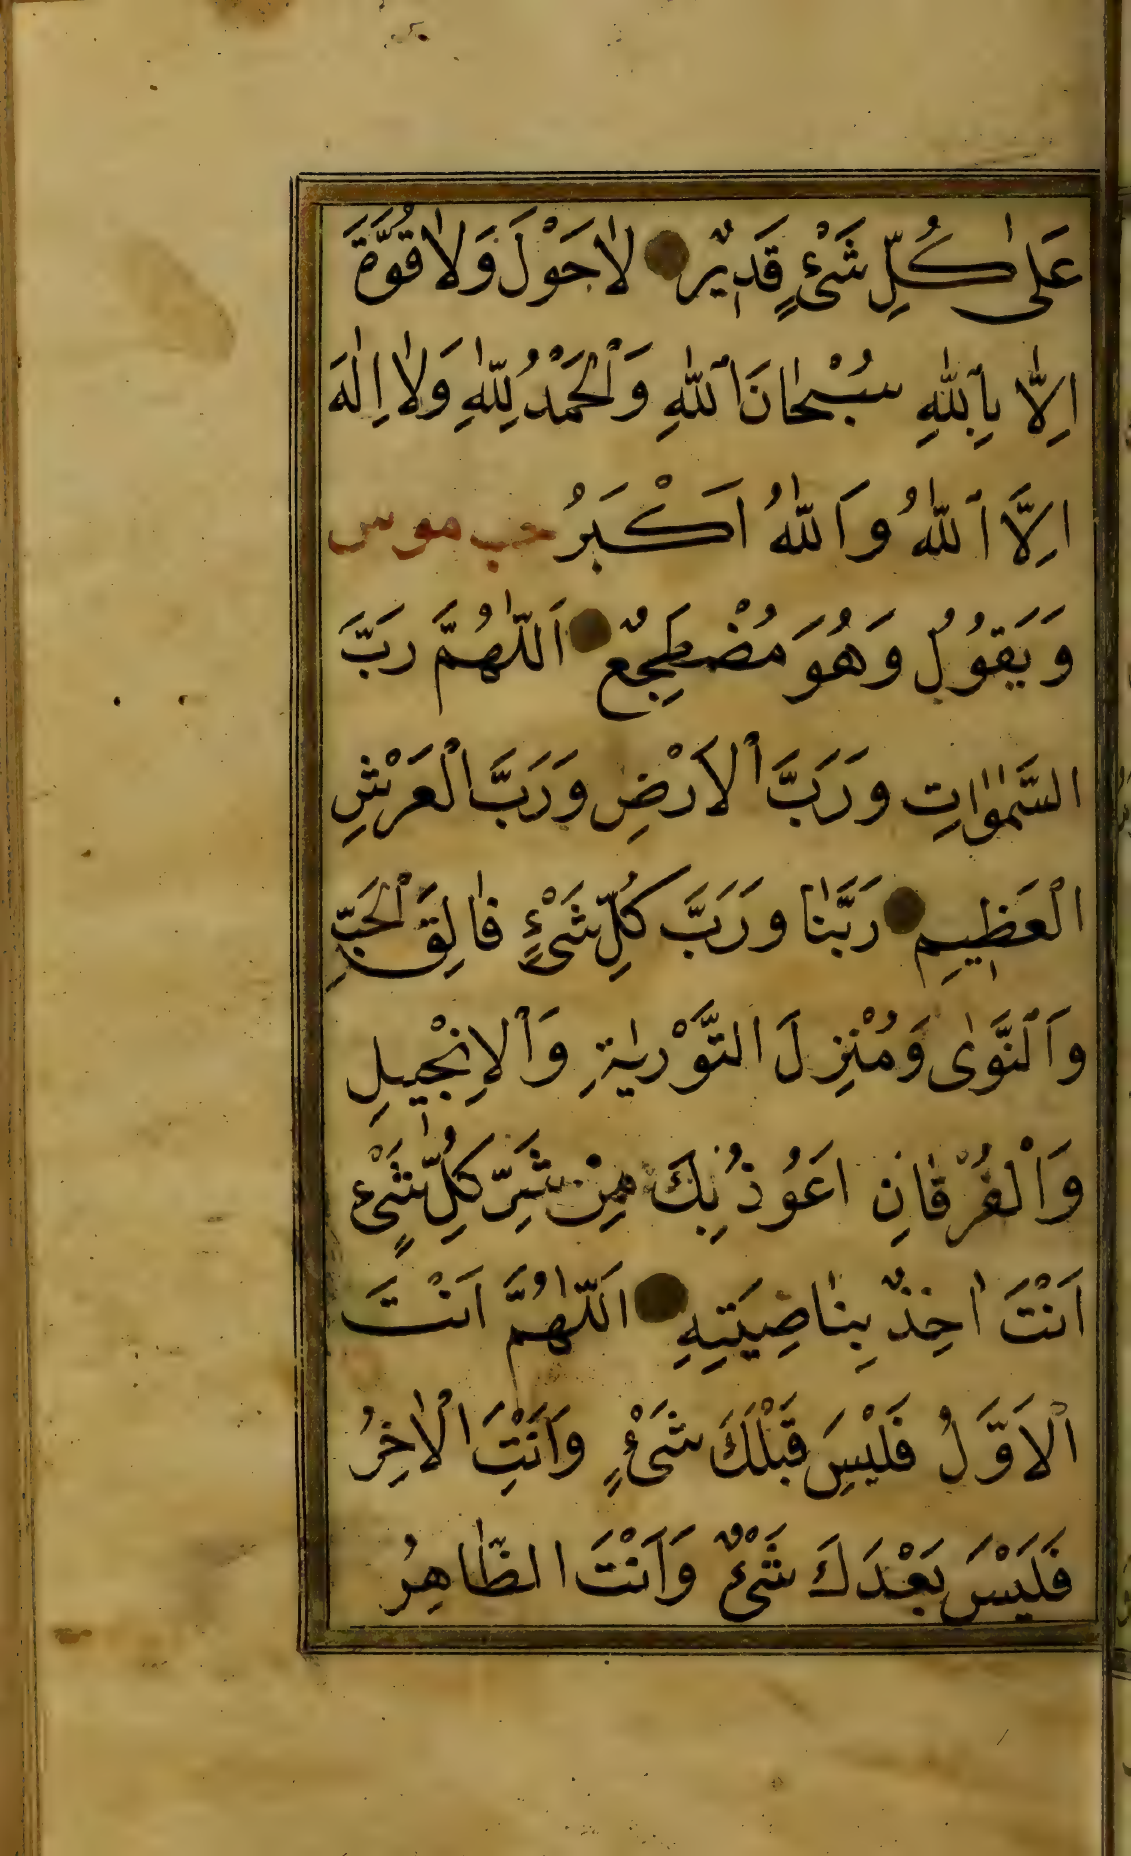 عَلىٰ كُلِّ شَيْءٍ قَدِيرٌ لاٰ حَوْلَ وَلاٰ قُوَّةَ
اِلاّٰ بِاللّٰهِ سُبْحٰانَ اللّٰهِ وَالْحَمْدُ لِلّٰهِ وَلاٰ اِلٰهَ
اِلاَّ اللّٰهُ وَاللّٰهُ اَكْبَرُ حب مو س
وَيَقُولُ وَهُوَ مُضْطَجِعٌ اَللّٰهُمَّ رَبَّ
السَّمٰوٰاتِ وَرَبَّ الْاَرْضِ وَرَبَّ الْعَرْشِ
الْعَظِيمِ رَبَّنٰا وَرَبَّ كُلِّ شَيْءٍ فٰالِقَ الْحَبِّ
وَالنَّوٰى وَمُنْزِلَ التَّوْرٰيةِ وَالْاِنْجِيلِ
وَالْفُرْقٰانِ اَعُوذُ بِكَ مِنْ شَرِّ كُلِّ شَيْءٍ
اَنْتَ اٰخِذٌ بِنٰاصِيَتِهِ اَللّٰهُمَّ اَنْتَ
الْاَوَّلُ فَلَيْسَ قَبْلَكَ شَيْءٌ وَاَنْتَ الْاٰخِرُ
فَلَيْسَ بَعْدَكَ شَيْءٌ وَاَنْتَ الظّٰاهِرُ